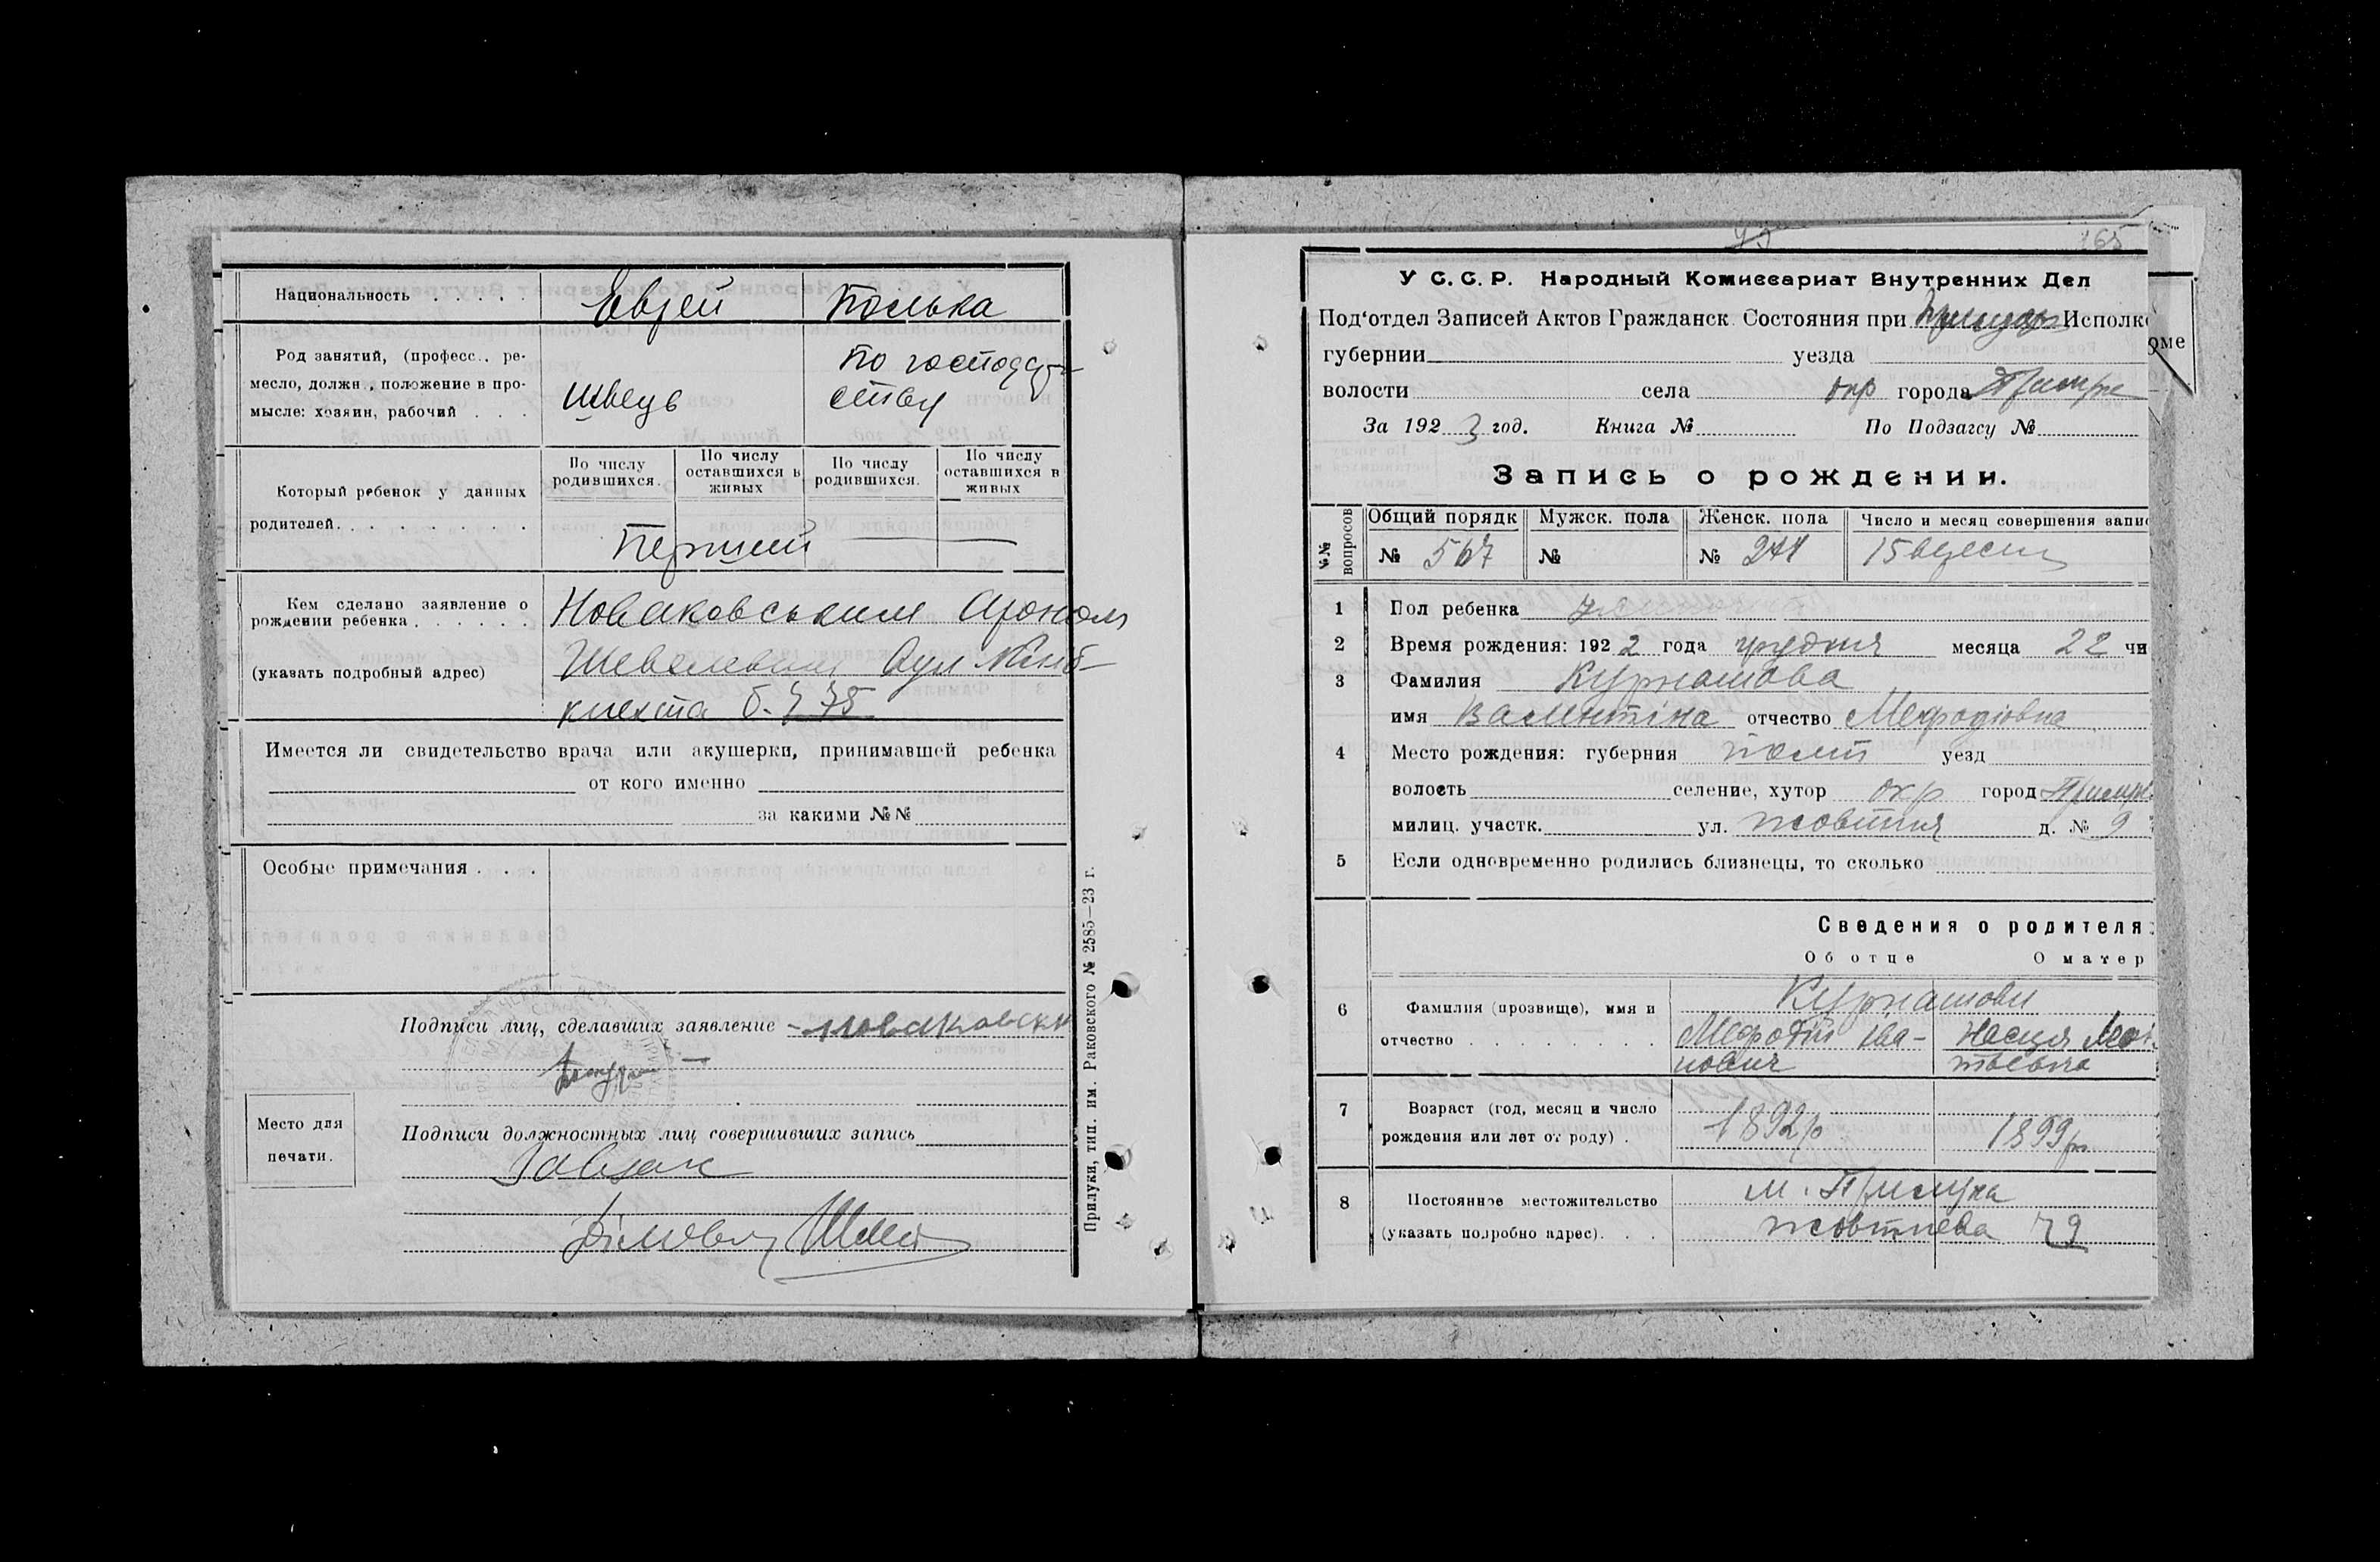 Национальность . . . . . Еврей Полька
Род занятий, (професс., ре-
месло, должн., положение в про-
мысле: хозяин, рабочий . . . Швець По господар
ству
Который ребенок у данных
родителей. . . . . . . . .
По числу родившихся. По числу оставшихся в живых По числу родившихся. По числу оставшихся в живых
Перший
Кем сделано заявление о
рождении ребенка . . . . . .
(указать подробный адрес)
Новаковським Ароном
Шевелевим Вул Лібк
кнехта б. № 75
Имеется ли свидетельство врача или акушерки, принимавшей ребенка
от кого именно
за какими №№
Особые примечания . . .
Подписи лиц, сделавших заявление Новаковски
Место для
печати.
Подписи должностных лиц совершивших запись
Завзак
Прилуки, тип. им. Раковского № 2585—23 г.
165
У С.С.Р. Народный Комиссариат Внутренних Дел
Под'отдел Записей Актов Гражданск. Состояния при Исполко
оме
губернии уезда
волости села окр города Прилуке
За 192 3 год. Книга № По Подзагсу №
Запись о рождении.
№№ вопросов
Общий порядк Мужск. пола Женск. пола Число и месяц совершения запис
№ 567 № № 271 15 вересня
1 Пол ребенка
2 Время рождения: 192 2 года грудня месяца 22 чи
3 Фамилия Курнашова
имя Валентіна отчество Мефодіовна
4 Место рождения: губерния Полт уезд
волость селение, хутор окр город Прилуки
милиц. участк. ул. Жовтня д. № 9
5 Если одновременно родились близнецы, то сколько
Сведения о родителя
Об отце О матер
6 Фамилия (прозвище), имя и
отчество . . . . . . . .
Курнашови
Мефодій Іва- Настя Мат
нович твевна
7 Возраст (год, месяц и число
рождения или лет от роду) .
1892 р 1899 р.
8 Постоянное местожительство
(указать подробно адрес). . .
м. Прилука
Жовтнева 79